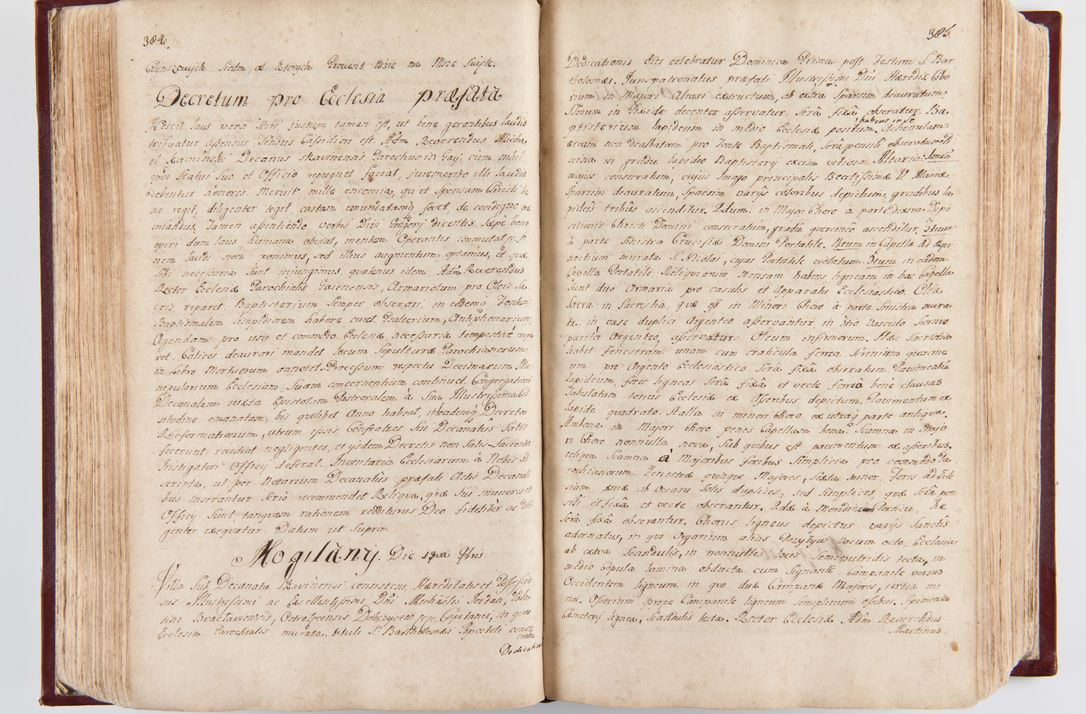 384.
Decretum pro Ecclesia præfata
Licet laus vera sem justum tamen est, ut bene gerentibus laudis
tribuatur assensus Senius Cassidior est Adm Reverendus Micha
el Kaminski Decanus Skawinensis Parochus in Gaÿ; cum nihil
quod Statui Suo et Officio repugnet faciat, juremerito illi laudis
debentur honores Meruit mille encomia, qui et Sponsam Christi be
ne regit, diligenter tegit, castam
mandus, tamen assentiendo verbis Divi Gregorÿ dicentis Sæpe bene
operi dum laus humana obviat, mentem Operantis immutat,
nem laudi non ponimus, sed illius augmentum optamus, et quæ
sibi necessaria sunt injungimus, quatenus idem Adm Reverendus
Rector Ecclesiæ Parochialis Armariolum pro Oleis Sa-
cris reparet. Baptisterium semper observari, in eodemq Fontem
Baptismalem limpidiorem habere curet Gradeurium, Antiphonarium
Agendam pro usu et commodo Ecclesiæ necessaria tempestivè
ret. Calices deaurari mandet locum Sepulturæ Parochianorum
in Libro Mortuorum annotet. Processum respectu Decimarum Ma
nipularium Ecclesiam Suam concernentium continuet. Congregationem
Decanalem juxta Epistolam Pastoralem à Sua Illustrissima Cel
situdine emanatam, bis quolibet Anno habeat, ibidemq Decreta
Reformationum, utrum ipsis Confratres Sui Decanatus Satis
fecerunt revideat negligentes, et eisdem Decretis non Satis-facientes
Instigatori Officÿ deferat. Inventaria Ecclesiarum à Nobis
scripta, ut per Notarium Decanalis præfati Actis Decanali
bus inserantur serio recommendet Reliqua, quæ sui muneris et
Officÿ Sunt, tanquam rationem redditurus Deo fideliter ac dili
genter exequatur Datum ut Supra.
Mogilanÿ. Die 19na 7bris
Villa Sub Decanatu Skawinensi consistens Hæreditatis et Possessio
nis Illustrissimi ac Excellentissimi Dni Michaelis Jordan, Pala
tini Braclaviensis, Ostrosensis Dobczycen Capitanei, in qua
Ecclesia Parochialis murata, tituli S. Bartholomæi Apostoli conse
crata
Dedicationis
385.
Dedicationis dies celebratur Dominica Prima post Festum S. Bar
tholomæi. Jurispatronatus præfati Illustrissimi Dni Hæredis Cibo
rium in Majori Altari exstructum, ab extra Sparsim deauratum
Smum in Pixide decenter asservatur, sera fixa obseratur. Ba
ptisterium lapideum in medio Ecclesiæ positum, habens in se
æream non dealbatam pro fonte Baptismali, sera pensili
scina in gradu lapideo Baptisterÿ excisa visitur. Altaria
majus consecratum, cujus Imago principalis Beatissimæ V. Mariæ
Sparsim deauratum, Sparsim varÿs coloribus depictum, gradibus la
pideis tribus ascenditur. 2dum. in Majori Choro à parte dextra Depo
sitionis Christi Domini consecratum, gradu quoque ascenditur. 3tium
à parte sinistra Crucifixi Domini Portatile. 4tum in Capella ad
nectium murata, S. Nicolai, cujus Portatile violatum. 5tum in eadem
Capella Portatile. Reliquiarum Mensam habens ligneam in hac Capella
sunt duo Armaria pro casulis et Apparatu Ecclesiastico. Olea
Sacra in Sacristia, quæ est in Minore Choro à parte Sinistra mura
ta, in vase duplici Argenteo asservantur, in 3tio Vasculo seorsivo
pariter Argenteo, asservatur Oleum infirmorum. Hæc Sacristia
habet fenestram unam cum craticula ferrea
um pro Argento Ecclesiastico sera fixa obseratum Pavimentum
lapideum, fores ligneas sera fixa et vecte ferreo bene clausas
Tabulatum totius Ecclesiæ ex Asseribus depictum. Pavimentum ex
lapide quadrato. Stalla in minori Choro ex utraq parte antiqua,
Ambona in Majori Choro penes Capellam bona. Scamna in Majo
ri Choro nonnulla nova, sub quibus est pavimentum ex asseribus,
reliqua Scamna à Majoribus foribus simplicia pro commodo Pa
rochianorum. Fenestræ quinque Majores, sexta minor. Fores ad Ecle
siam unæ ab Occasu Solis duplices, sed simplices, quæ sera pen
sili et fixa et vecte obserantur. 2dæ à Meridie cum Porticu, Hæ
sera fixa obserantur. Chorus ligneus depictus varÿs Sanctis
adornatus, in quo Organum alias Pozÿtÿw vocum octo. Ecclesia
ab extra Scandulis, in nonnullis locis semiputridis tecta, in
medio Cupula lamina obducta cum Signante Campanile versus
Occidentem ligneum, in quo duæ Campanæ Majores, tertia mi
nor. Ossorium prope Campanile ligneum simplex plenum ossibus. Sepimenta
Cæmeterÿ lignea, Scandulis tecta. Rector Ecclesiæ Adm Reverendus
Martinus